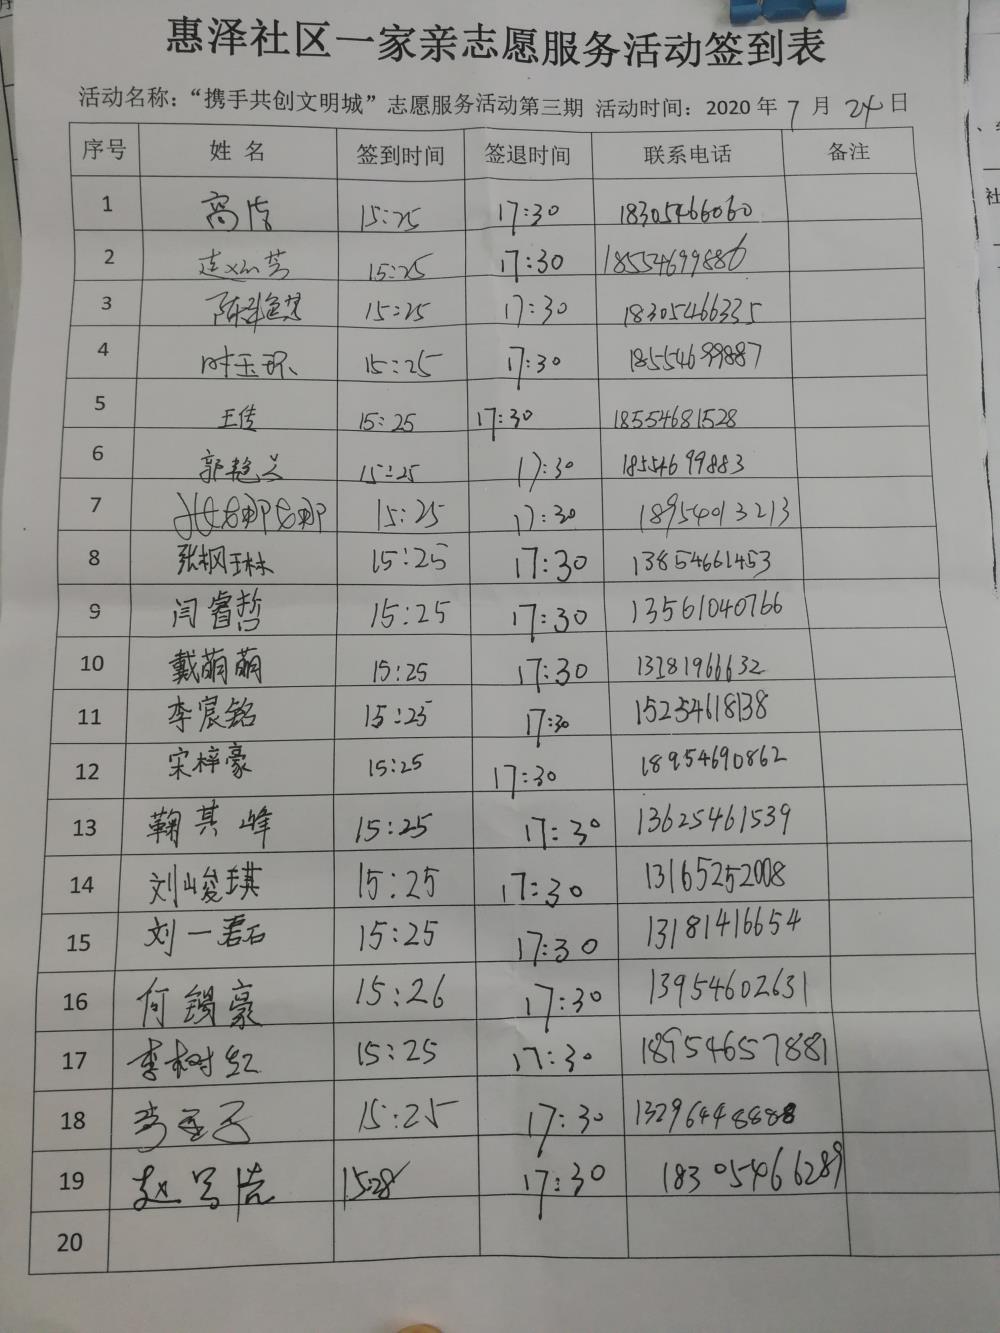 惠泽社区一家亲志愿服务活动签到表
活动名称：“携手共创文明城”志愿服务活动第三期 活动时间：2020 年 7 月 24 日
序号 姓 名 签到时间 签退时间 联系电话 备注
1 高洁 15:25 17:30 18305466060
2 15:25 17:30 18554699886
3 15:25 17:30 18305466335
4 时玉环 15:25 17:30 18554699887
5 王传 15:25 17:30 18554681528
6 15:25 17:30 18554699883
7 张娜娜 15:25 17:30 18954013213
8 张枫琳 15:25 17:30 13854661453
9 闫睿哲 15:25 17:30 13561040766
10 戴萌萌 15:25 17:30 13181966632
11 李宸铭 15:25 17:30 15254618138
12 宋梓豪 15:25 17:30 18954690862
13 鞠其峰 15:25 17:30 13625461539
14 刘峻琪 15:25 17:30 13165252008
15 刘一君 15:25 17:30 13181416654
16 何锡豪 15:26 17:30 13954602631
17 李树红 15:25 17:30 18954657881
18 15:25 17:30 13296448888
19 15:28 17:30 18305466289
20